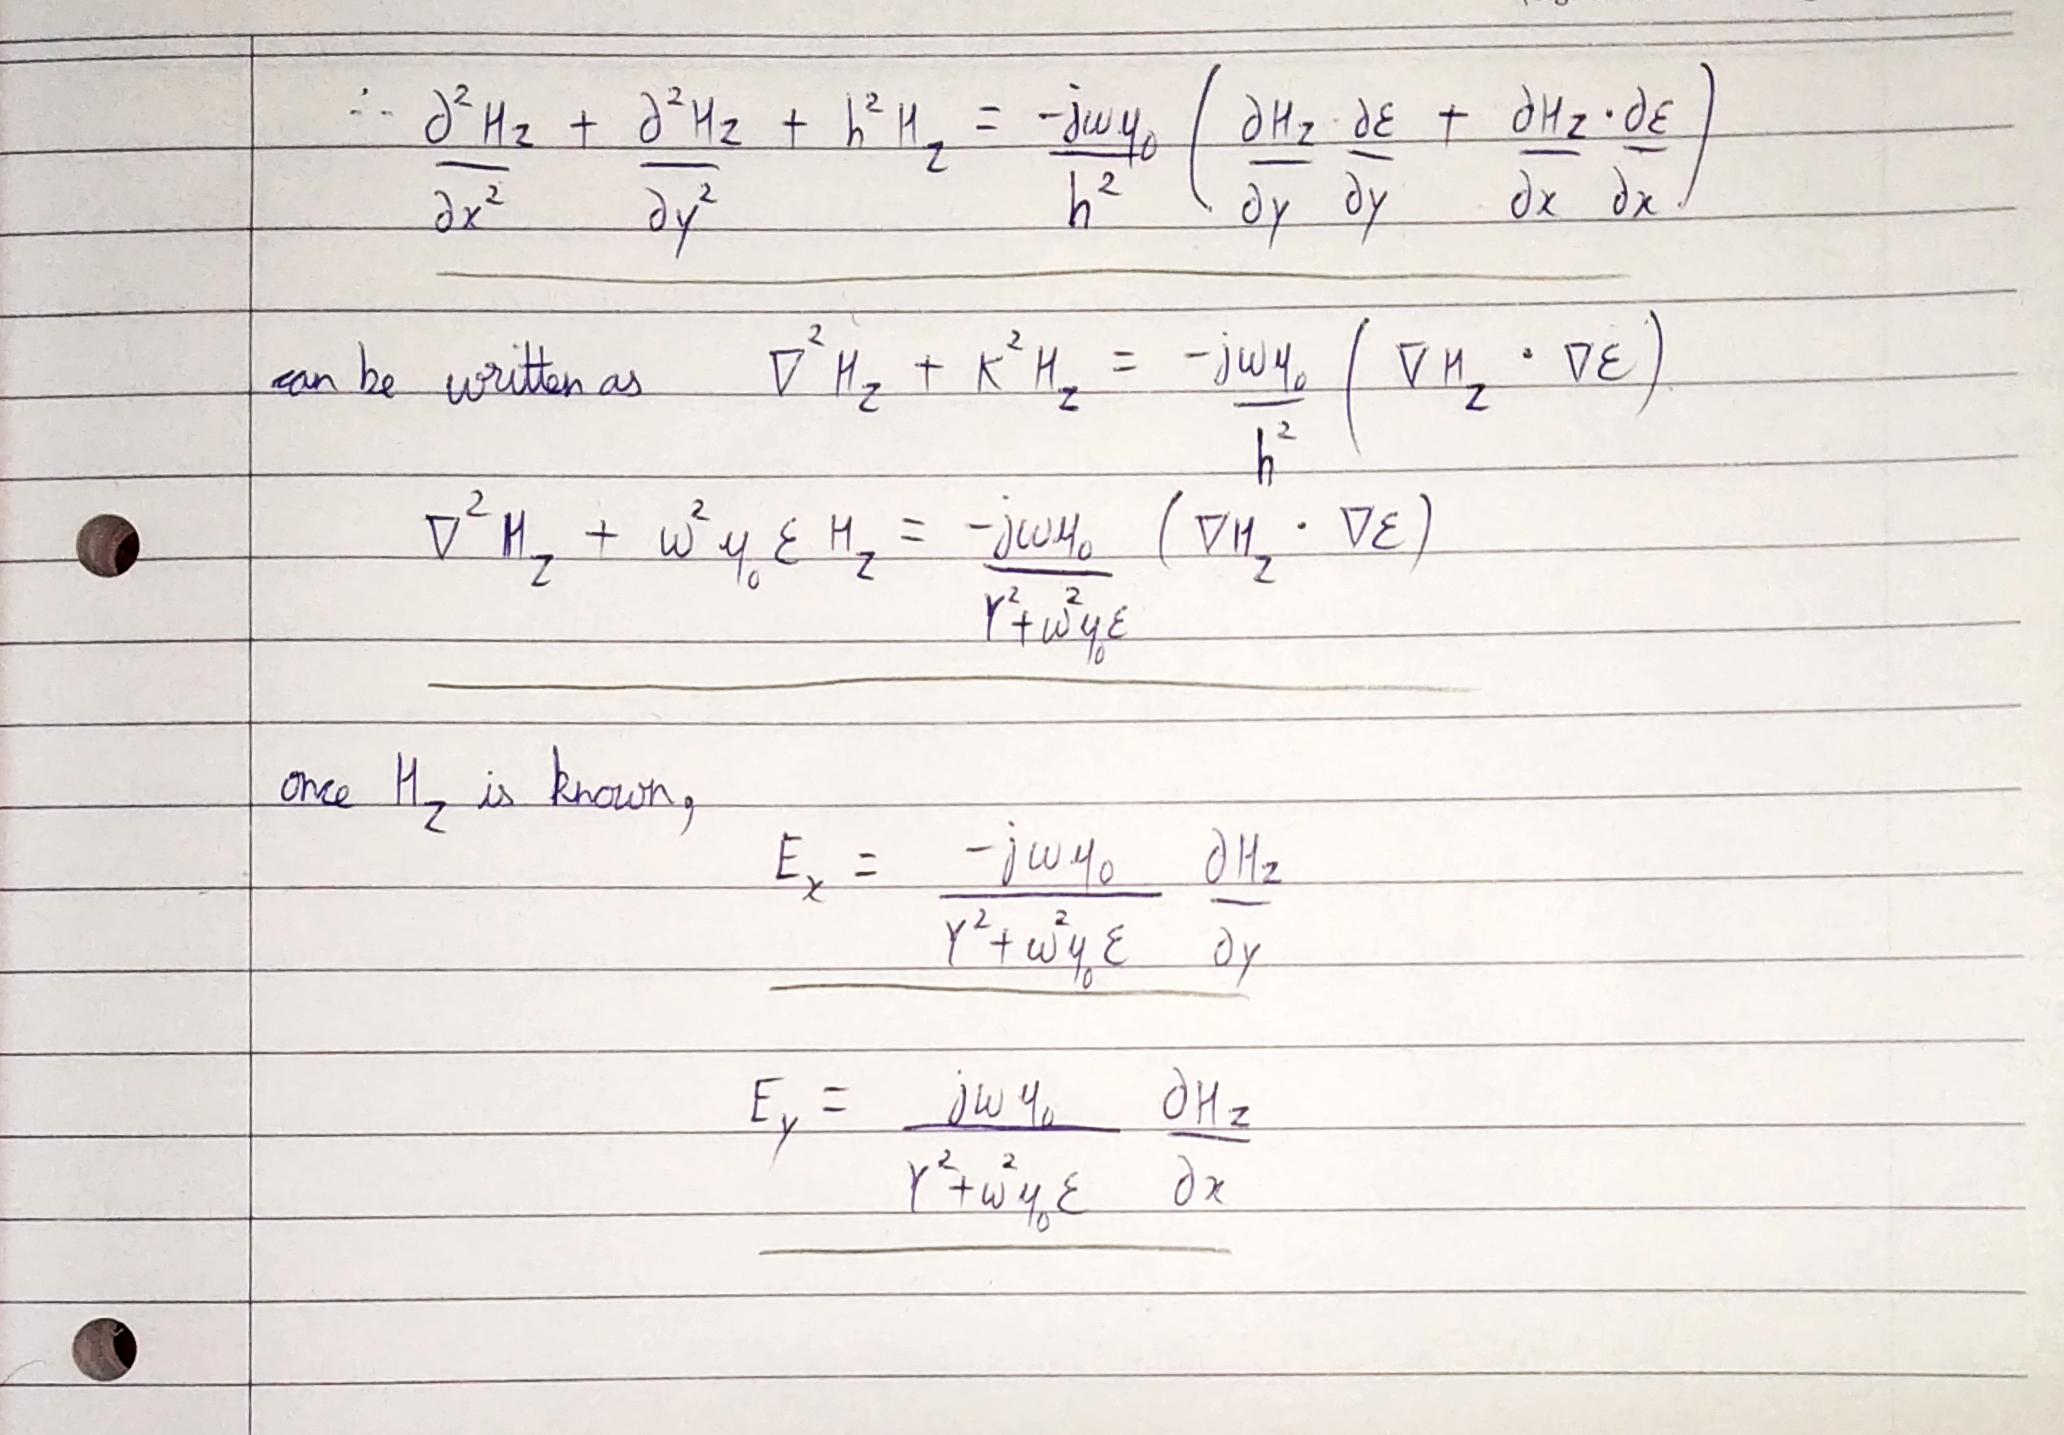 ∴ ∂²H_z/∂x² + ∂²H_z/∂y² + h²H_z = -jωμ₀/h² ( ∂H_z/∂y · ∂ε/∂y + ∂H_z/∂x · ∂ε/∂x )
can be written as ∇²H_z + K²H_z = -jωμ₀/h² ( ∇H_z · ∇ε )
∇²H_z + ω²μ₀εH_z = -jωμ₀/(γ²+ω²μ₀ε) ( ∇H_z · ∇ε )
once H_z is known,
E_x = -jωμ₀/(γ²+ω²μ₀ε) ∂H_z/∂y
E_y = jωμ₀/(γ²+ω²μ₀ε) ∂H_z/∂x